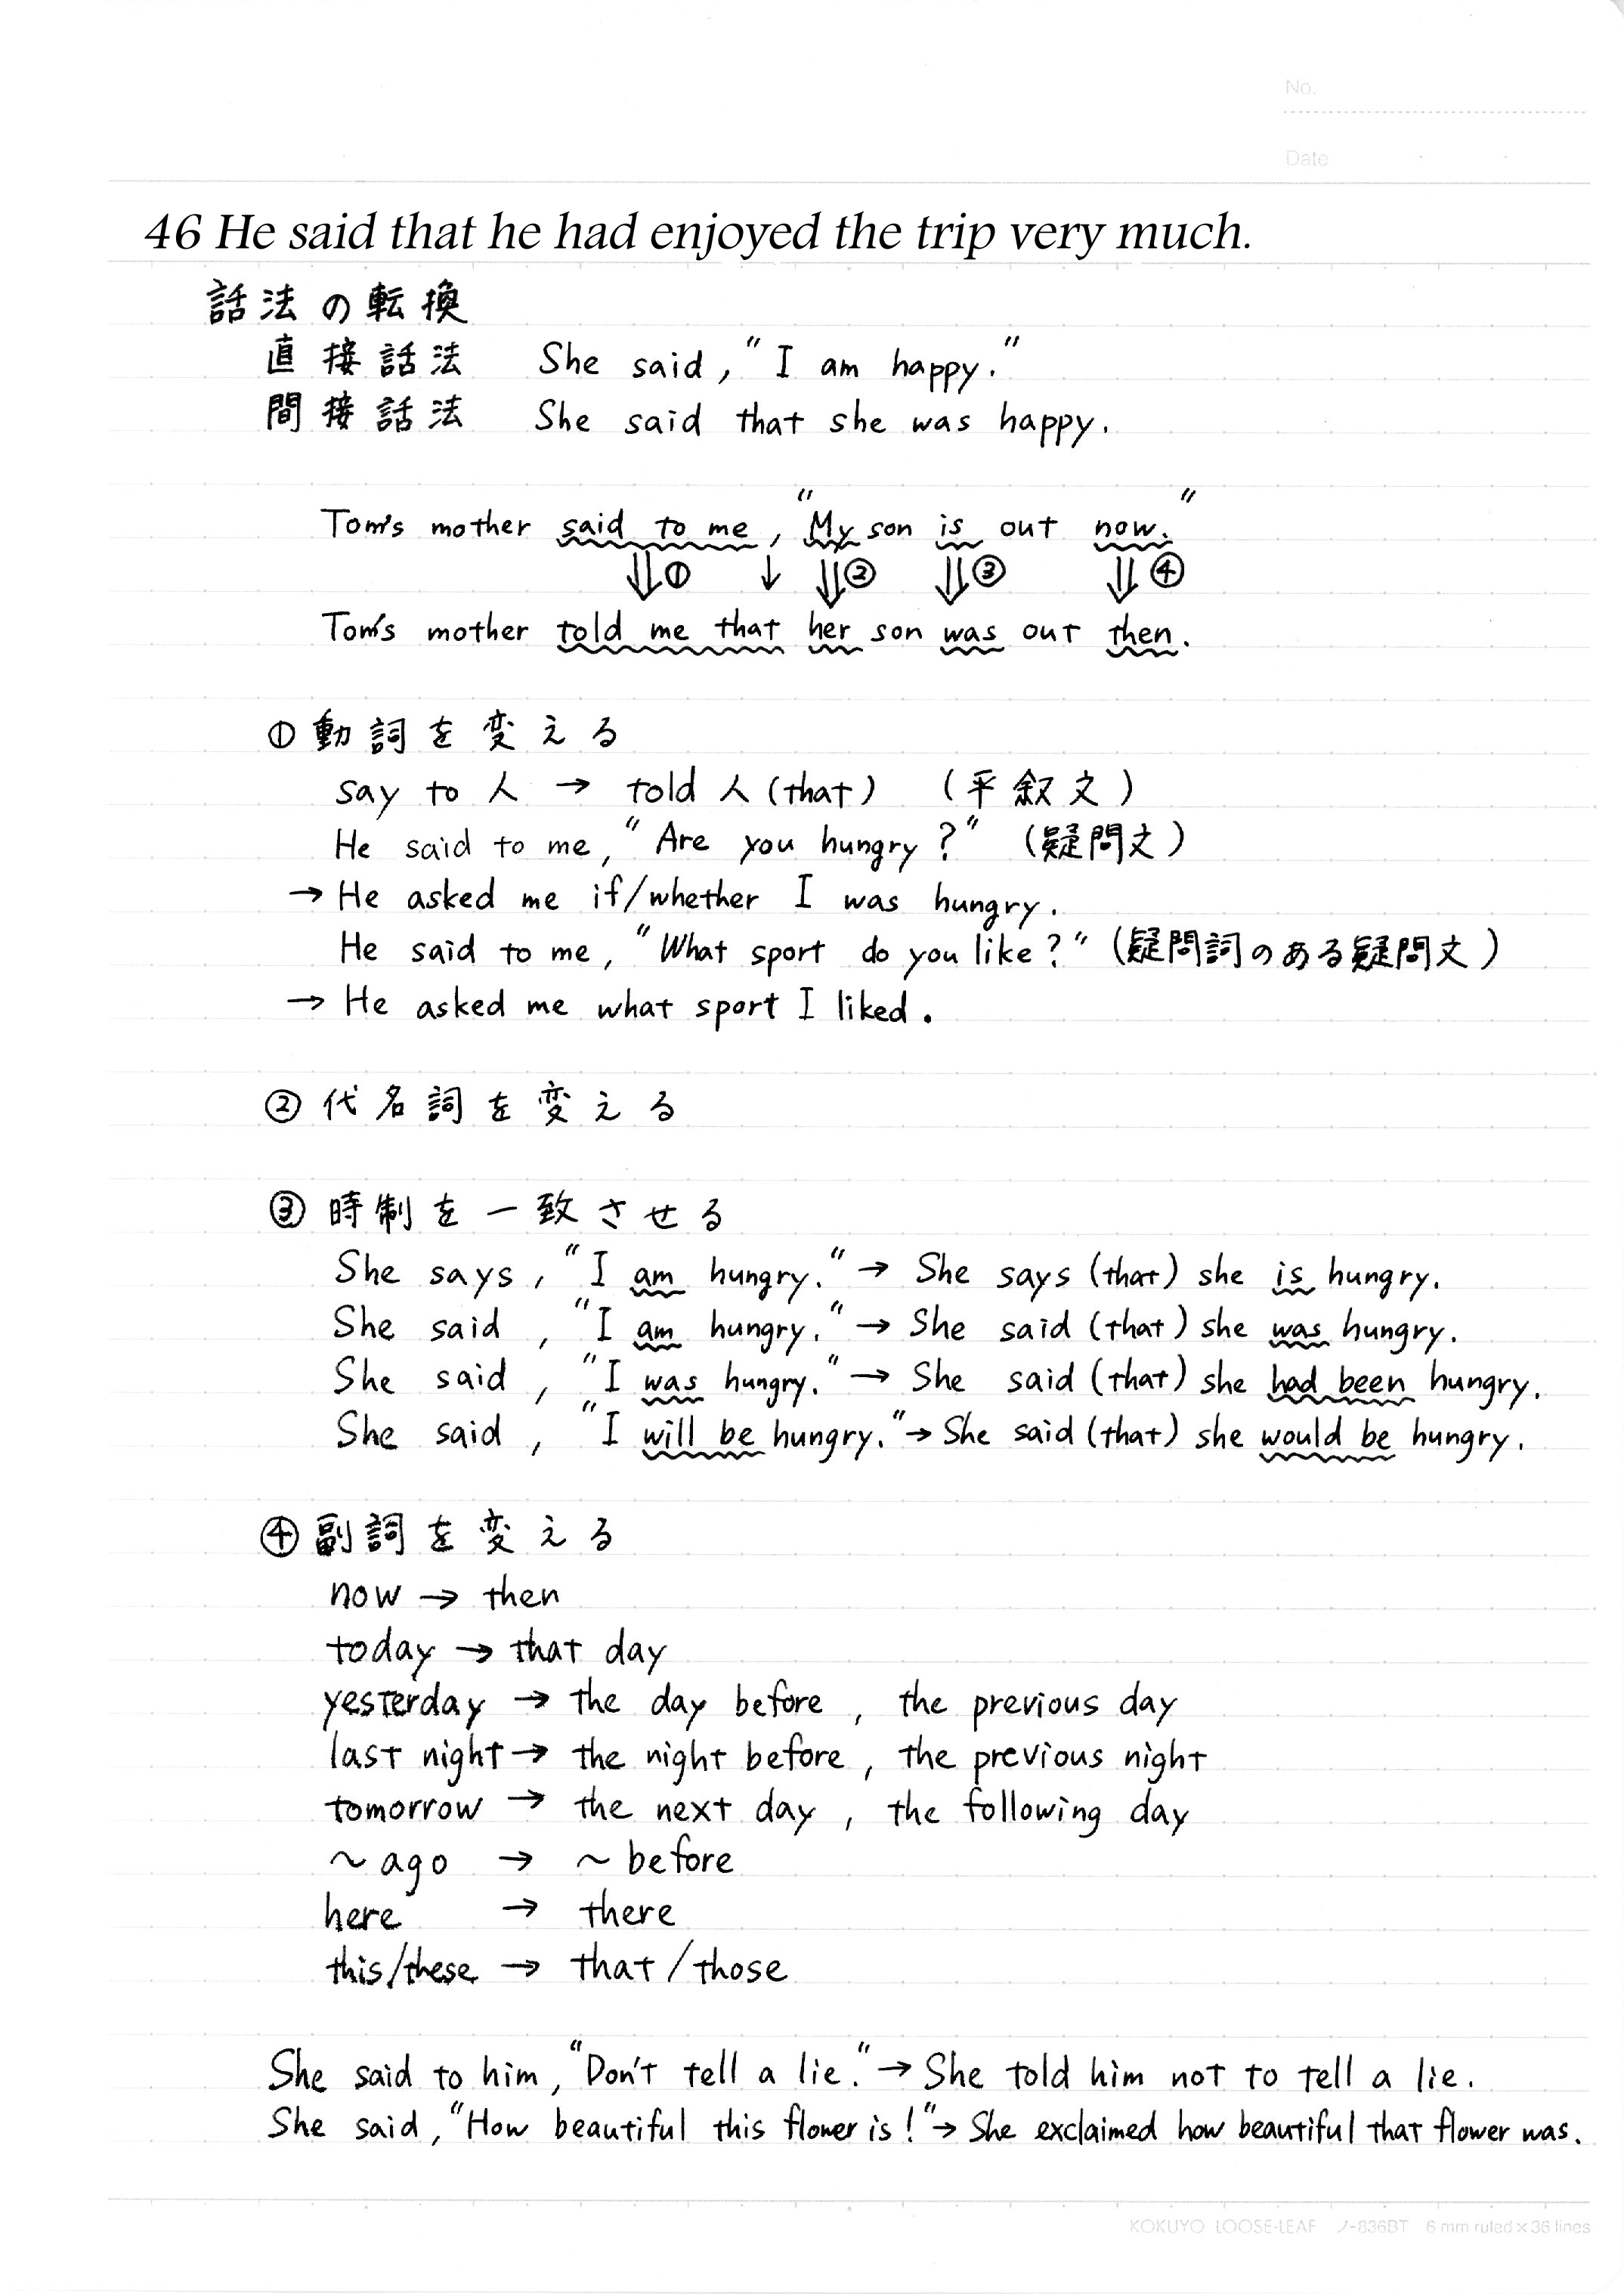 No.
Date
46 He said that he had enjoyed the trip very much.
話法の転換
直接話法 She said, "I am happy."
間接話法 She said that she was happy.
Tom's mother said to me, "My son is out now."
⇓① ↓ ⇓② ⇓③ ⇓④
Tom's mother told me that her son was out then.
①動詞を変える
say to 人 → told 人 (that) (平叙文)
He said to me, "Are you hungry?" (疑問文)
→ He asked me if/whether I was hungry.
He said to me, "What sport do you like?" (疑問詞のある疑問文)
→ He asked me what sport I liked.
②代名詞を変える
③時制を一致させる
She says, "I am hungry." → She says (that) she is hungry.
She said, "I am hungry." → She said (that) she was hungry.
She said, "I was hungry." → She said (that) she had been hungry.
She said, "I will be hungry." → She said (that) she would be hungry.
④副詞を変える
now → then
today → that day
yesterday → the day before, the previous day
last night → the night before, the previous night
tomorrow → the next day, the following day
~ ago → ~ before
here → there
this/these → that/those
She said to him, "Don't tell a lie." → She told him not to tell a lie.
She said, "How beautiful this flower is!" → She exclaimed how beautiful that flower was.
KOKUYO LOOSE-LEAF ノ-836BT 6 mm ruled×36 lines